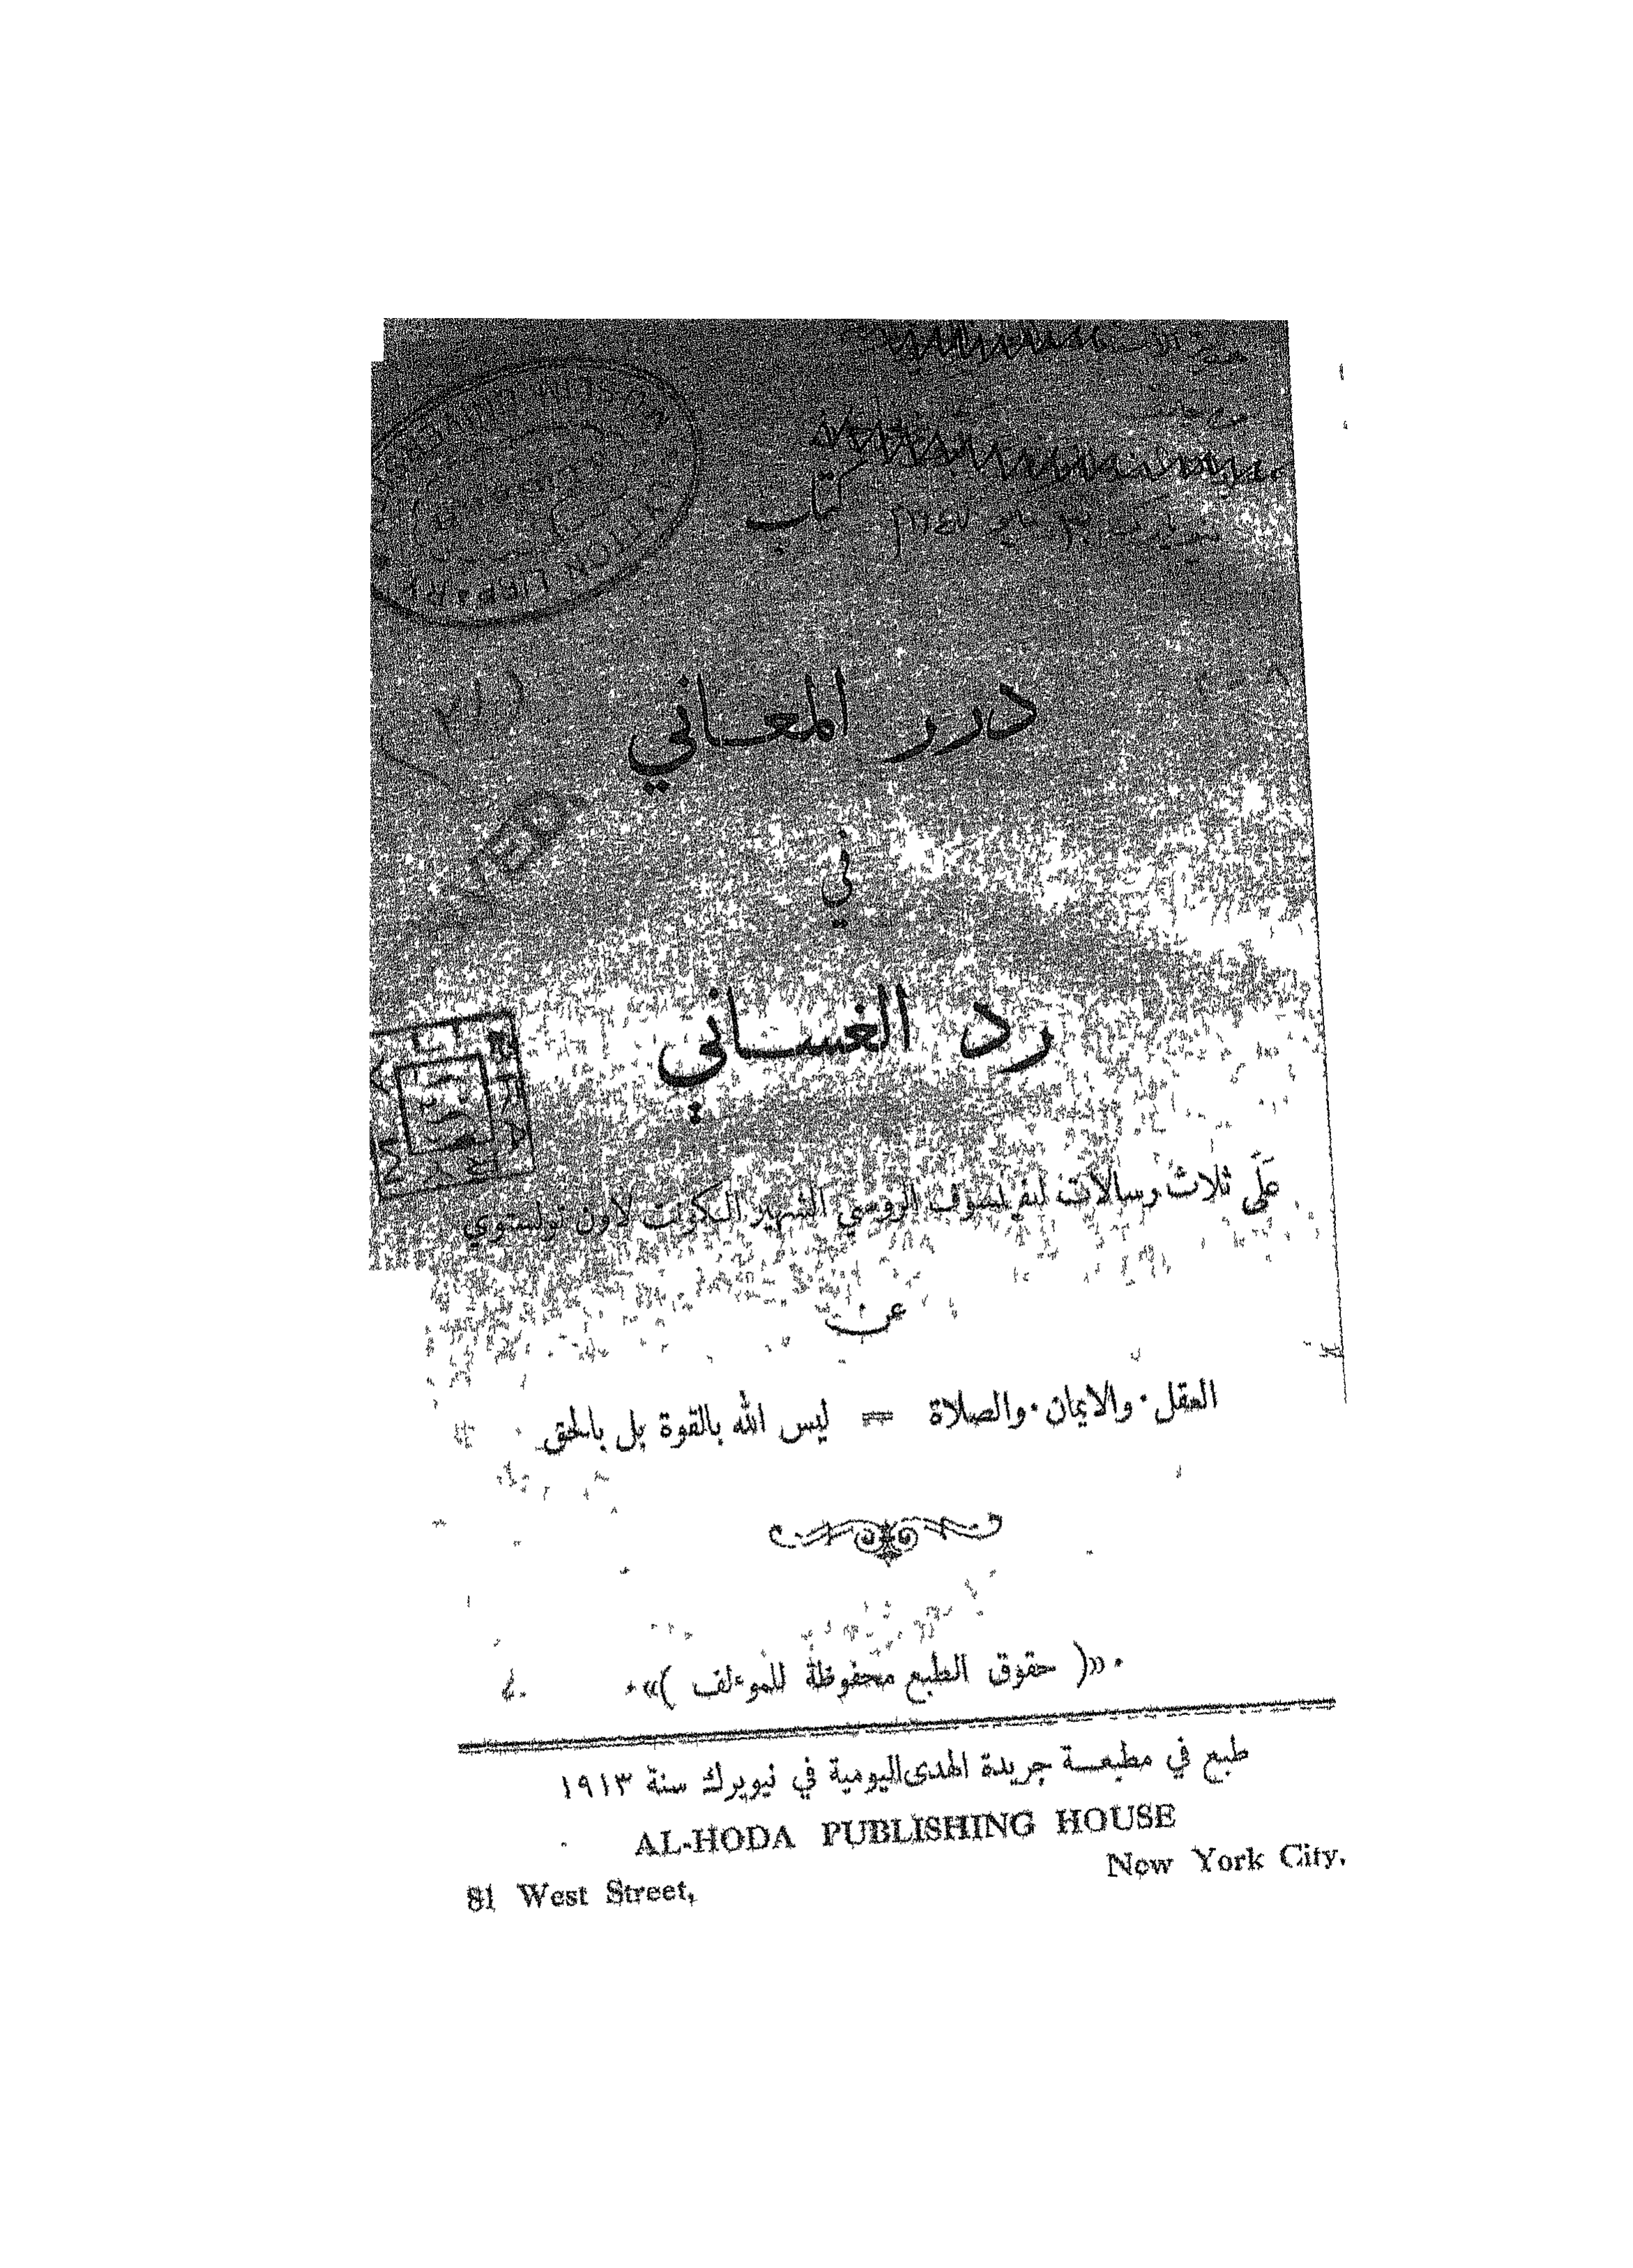 كتاب
درر المعاني
في
رد الغساني
على ثلاث رسالات للفيلسوف الروسي الشهير الكونت لاون تولستوي
عن
العقل · والايمان · والصلاة = ليس الله بالقوة بل بالحق
·»( حقوق الطبع محفوظة للموءلف )«·
طبع في مطبعة جريدة الهدى اليومية في نيويرك سنة ١٩١٣
AL-HODA PUBLISHING HOUSE
81 West Street, New York City.